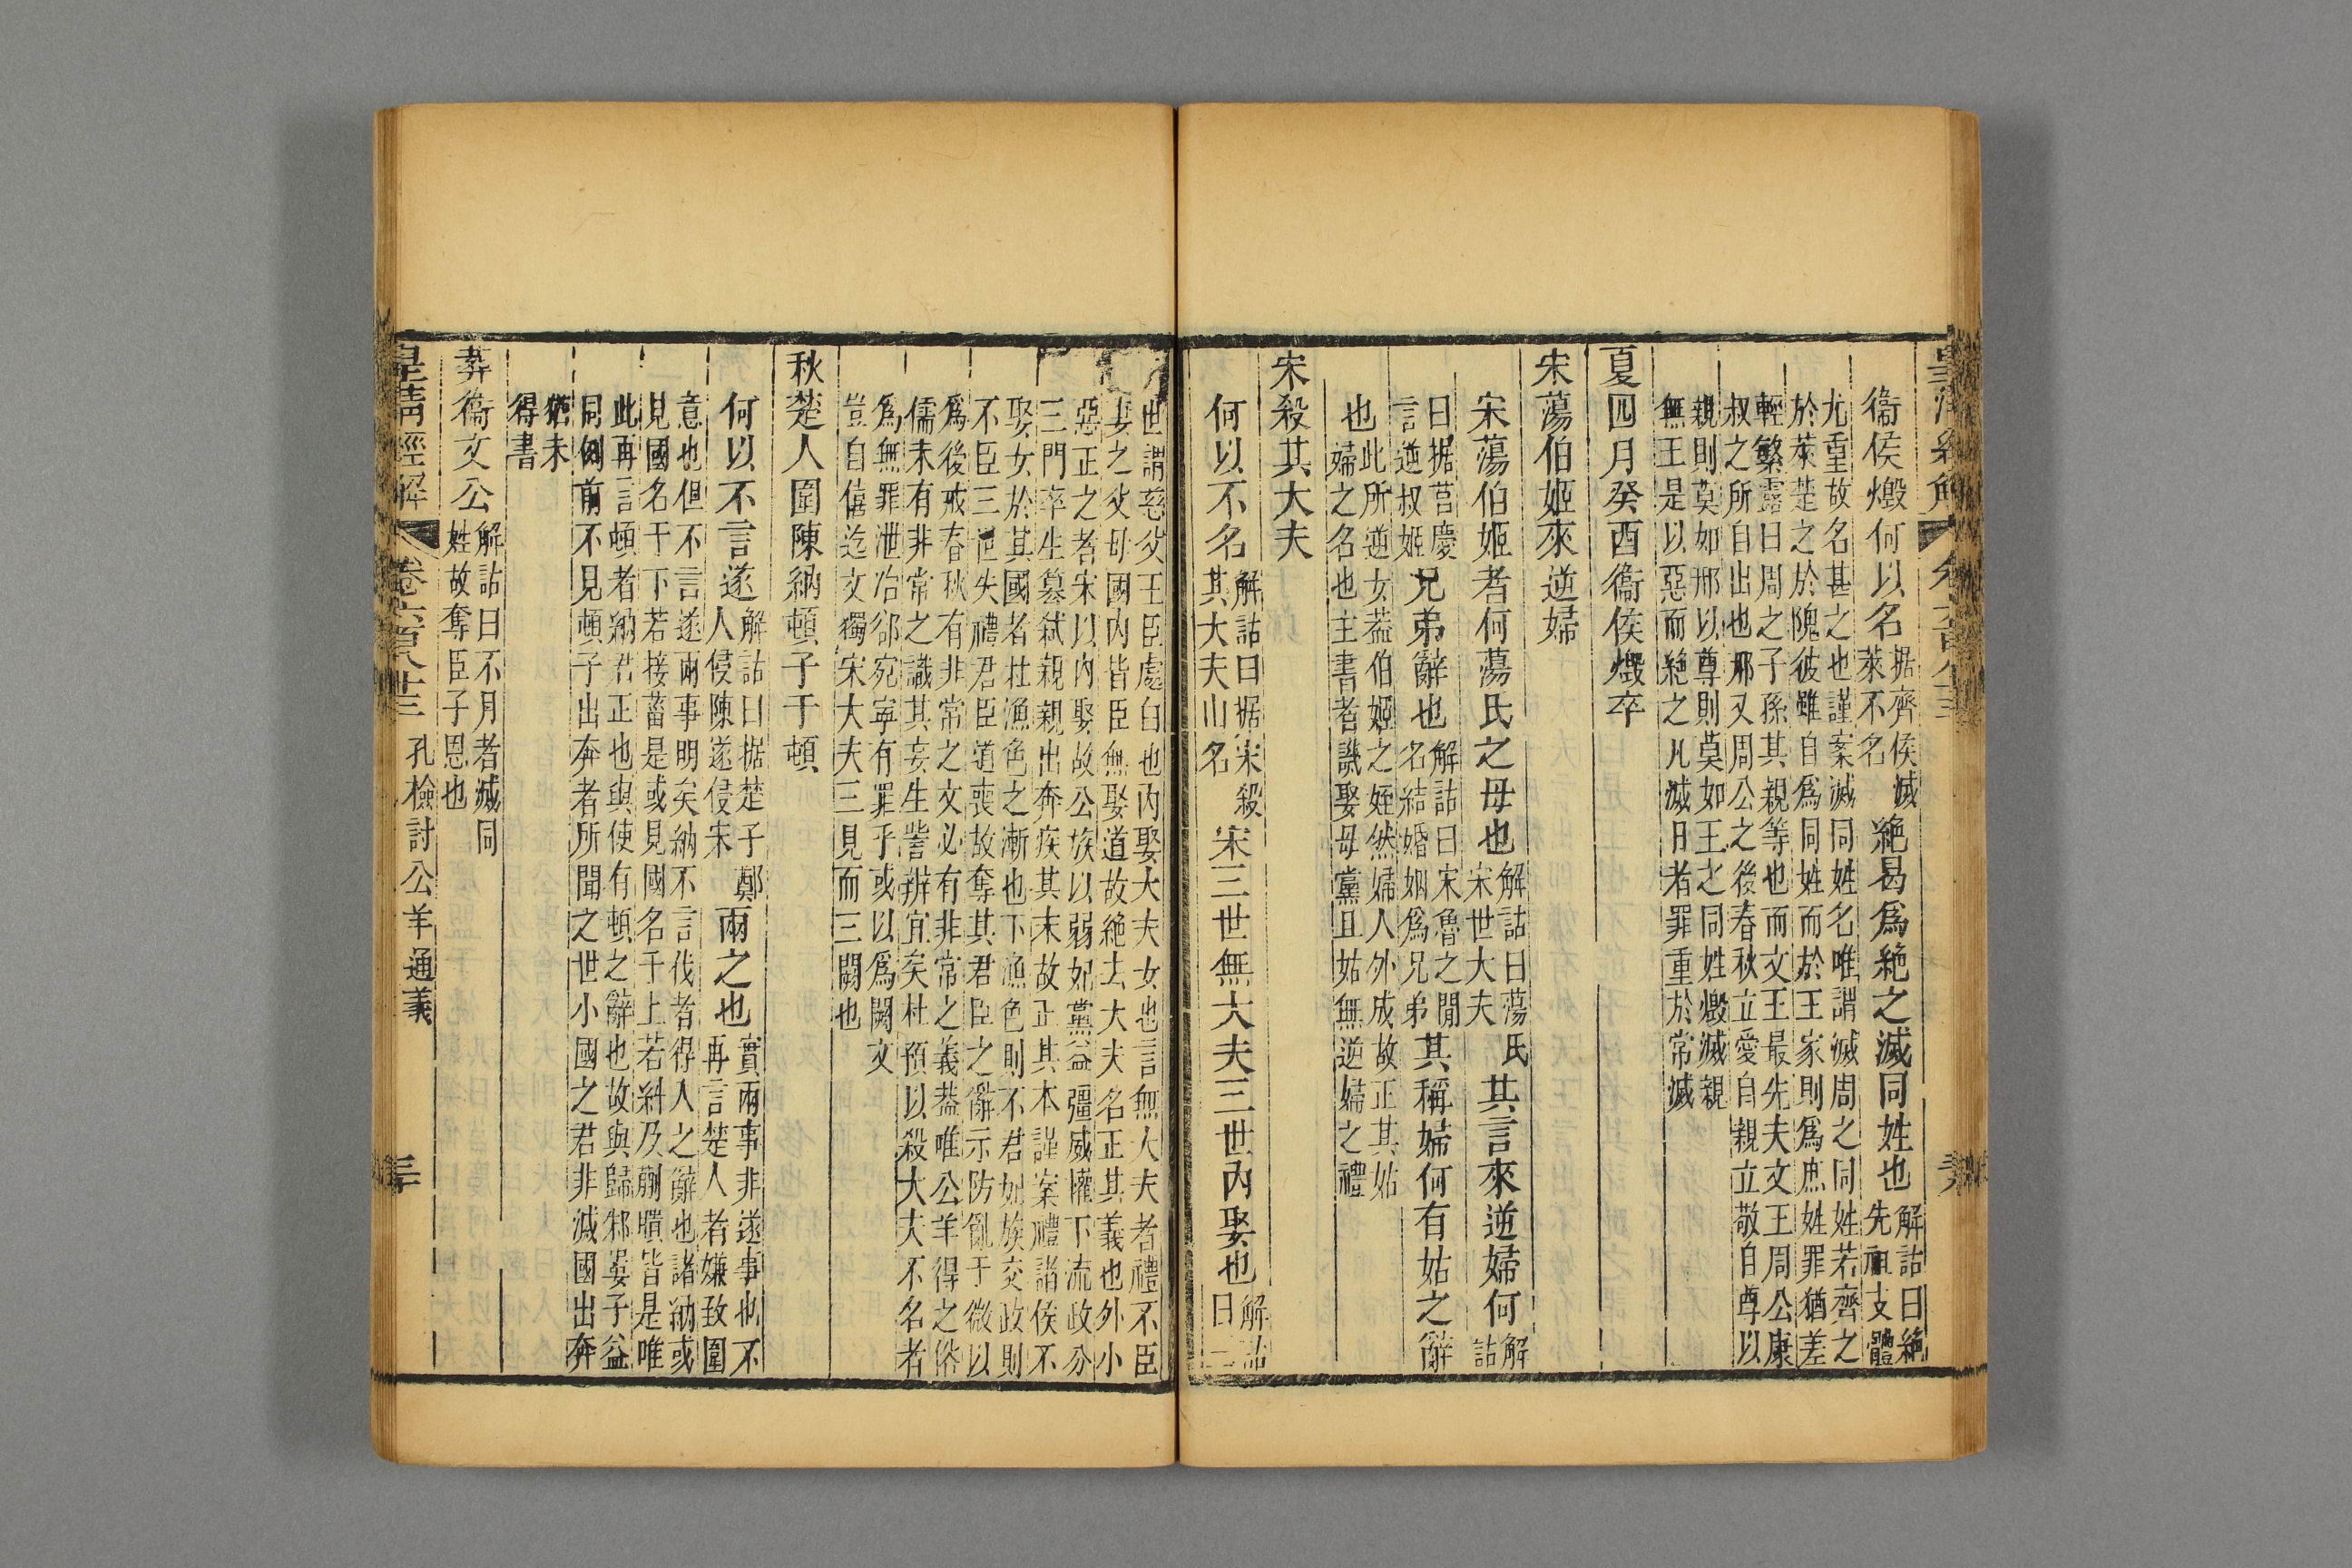 皇清經解 卷六百八十三
衞侯燬何以名
据齊侯滅
萊不名
絕曷爲絕之滅同姓也
解詁曰絕
先祖支體
尤重故名甚之也謹案滅同姓名唯謂滅周之同姓若齊之
於萊楚之於隗彼雖自爲同姓而於王家則爲庶姓罪猶差
輕繁露曰周之子孫其親等也而文王最先夫文王周公康
叔之所自出也邢又周公之後春秋立愛自親立敬自尊以
親則莫如邢以尊則莫如王之同姓燬滅親
無王是以惡而絕之凡滅日者罪重於常滅
夏四月癸酉衞侯燬卒
宋蕩伯姬來逆婦
宋蕩伯姬者何蕩氏之母也
解詁曰蕩氏
宋世大夫
其言來逆婦何
解
詁
曰据莒慶
言逆叔姬
兄弟辭也
解詁曰宋魯之閒
名結婚姻爲兄弟
其稱婦何有姑之辭
也
此所逆女葢伯姬之姪然婦人外成故正其姑
婦之名也主書者譏娶母黨且姑無逆婦之禮
宋殺其大夫
何以不名
解詁曰据宋殺
其大夫山名
宋三世無大夫三世內娶也
解詁
曰三
世謂慈父王臣處臼也內娶大夫女也言無大夫者禮不臣
妻之父母國內皆臣無娶道故絕去大夫名正其義也外小
惡正之者宋以內娶故公族以弱妃黨益彊威權下流政分
三門卒生墓弒親親出奔疾其末故正其本謹案禮諸侯不
娶女於其國者杜漁色之漸也下漁色則不君妃族交政則
不臣三世失禮君臣道喪故奪其君臣之辭示防亂于微以
爲後戒春秋有非常之文必有非常之義葢唯公羊得之俗
儒未有非常之識其妄生訾辨宜矣杜預以殺大夫不名者
爲無罪泄冶郤宛寧有罪乎或以爲闕文
豈自僖迄文獨宋大夫三見而三闕也
秋楚人圍陳納頓子于頓
何以不言遂
解詁曰据楚子鄭
人侵陳遂侵宋
兩之也
實兩事非遂事也不
再言楚人者嫌致圍
意也但不言遂兩事明矣納不言伐者得人之辭也諸納或
見國名于下若接菑是或見國名于上若糾及蒯聵皆是唯
此再言頓者納君正也與使有頓之辭也故與歸邾婁子益
同例前不見頓子出奔者所聞之世小國之君非滅國出奔
猶未
得書
葬衞文公
解詁曰不月者滅同
姓故奪臣子恩也
皇清經解 卷六百八十三 孔檢討公羊通義 三十